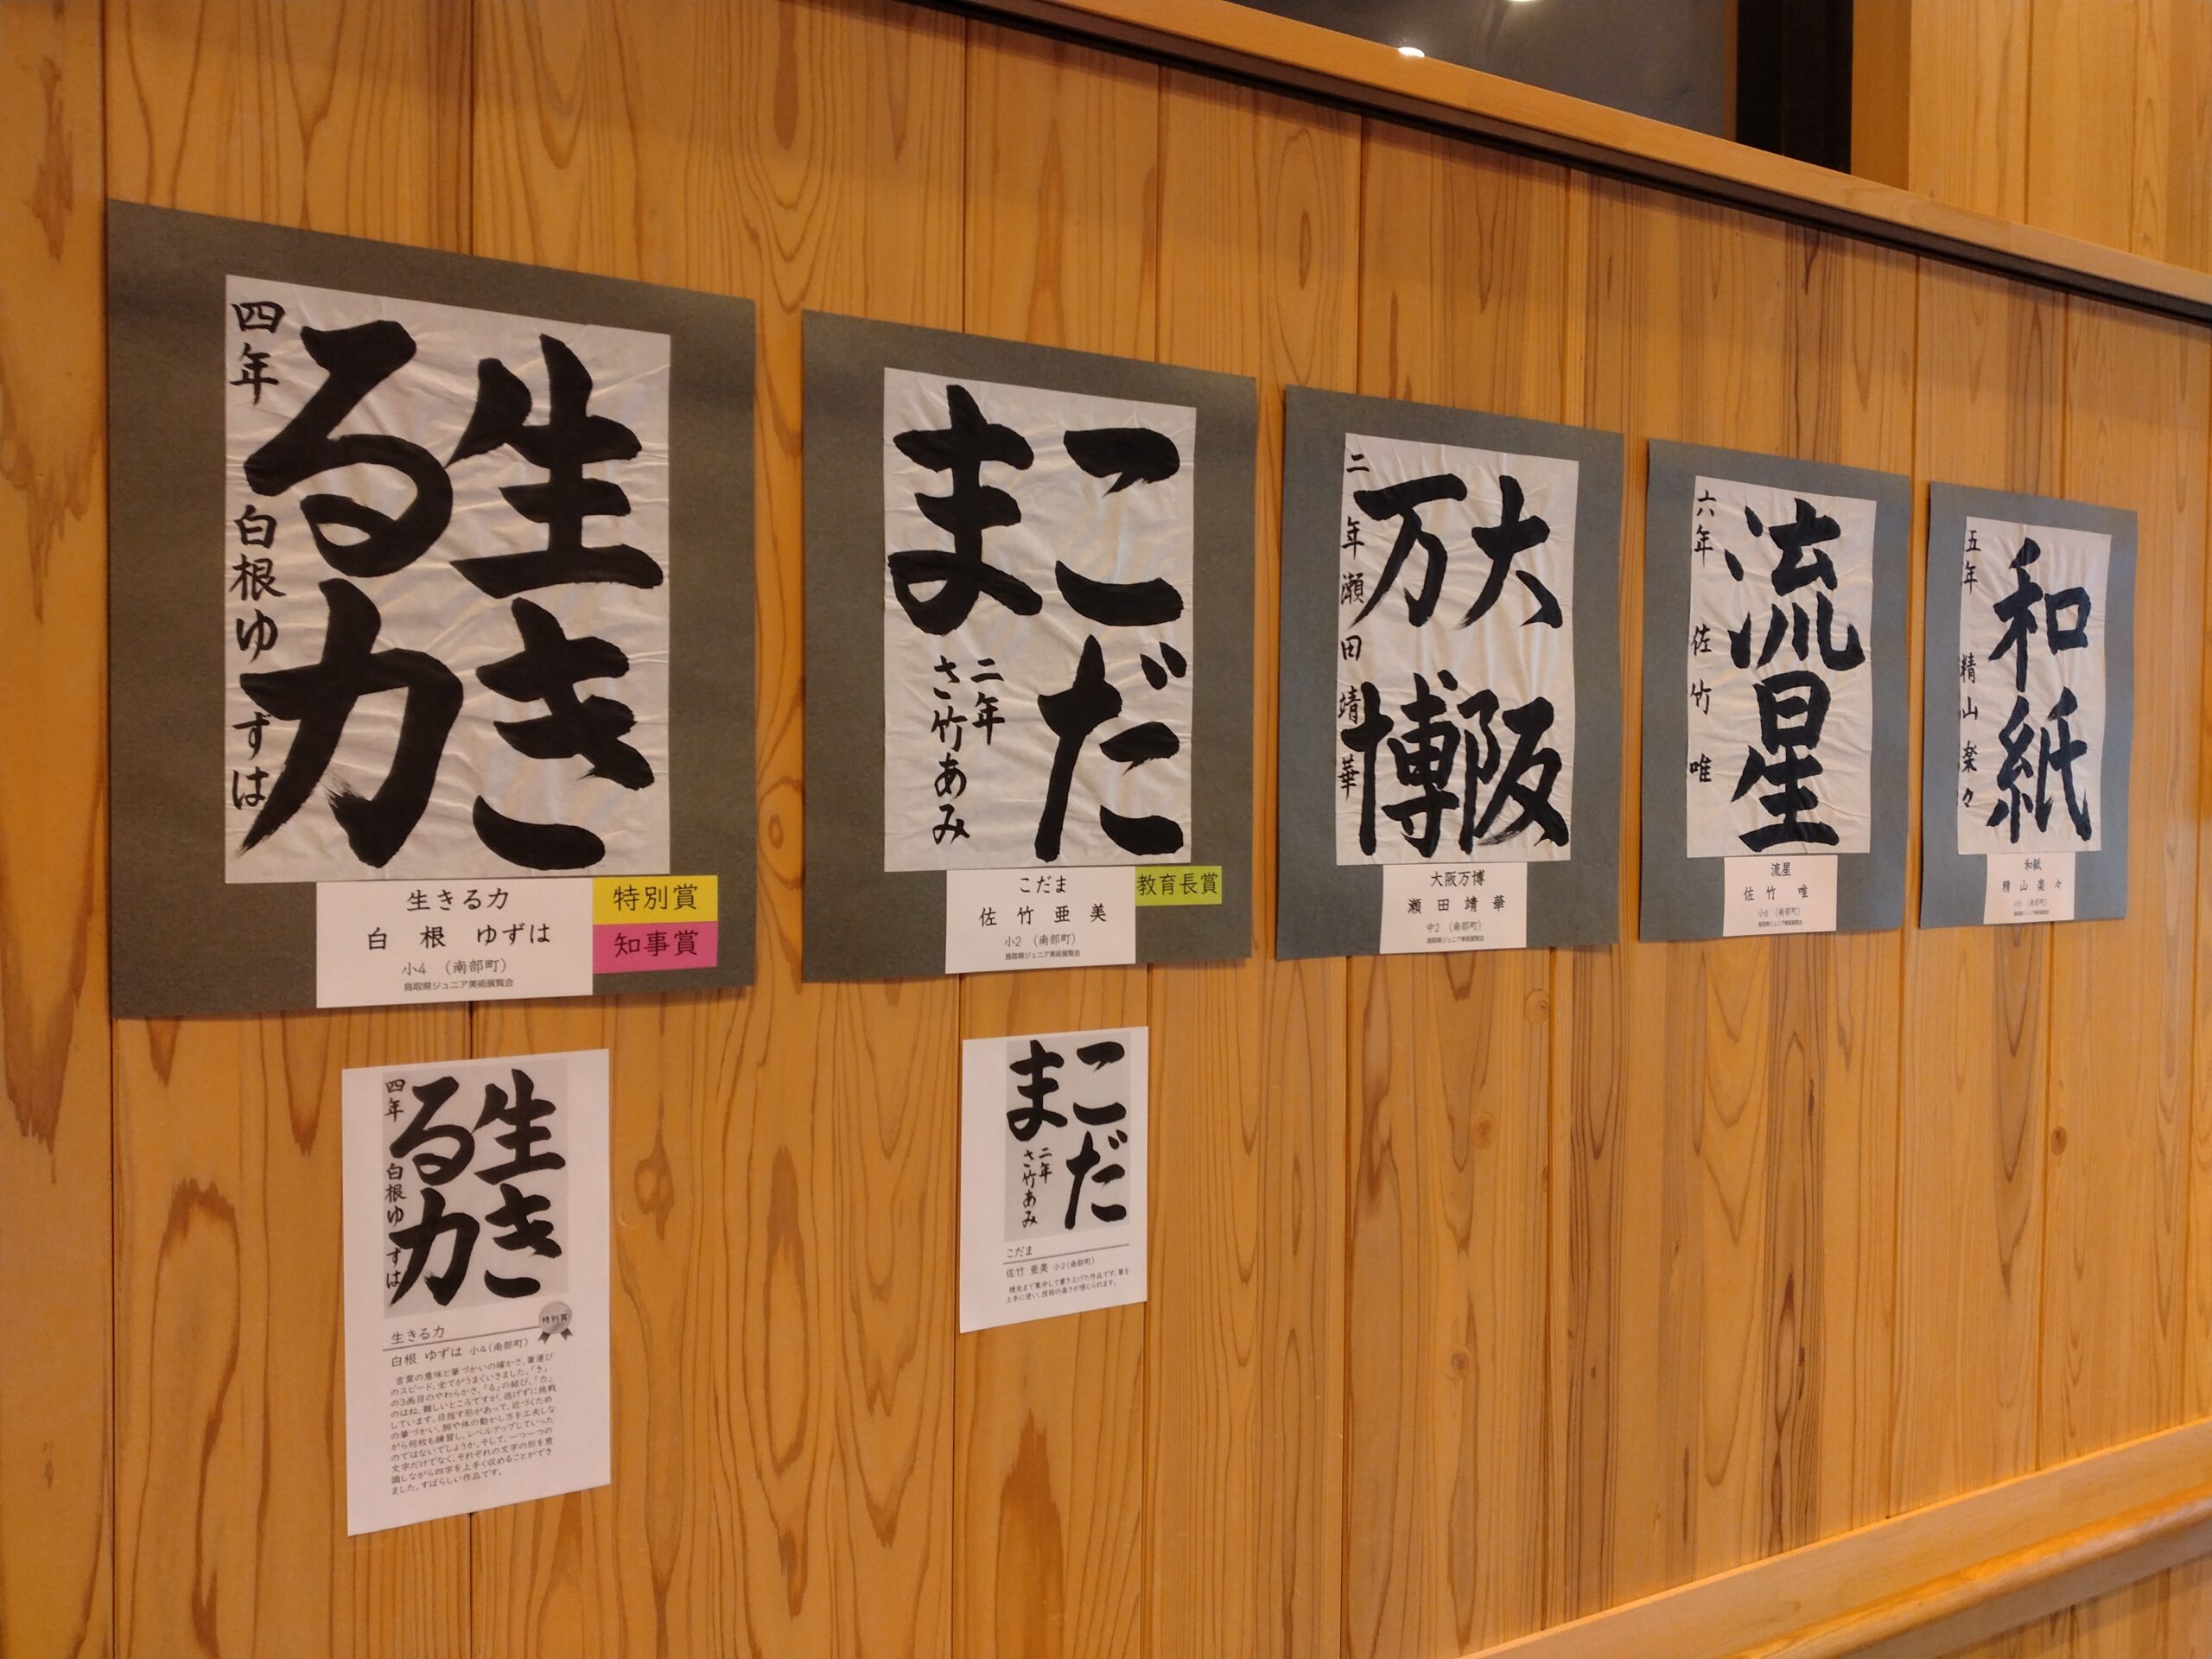 生き
る力
四年 白根ゆずは
生きる力
白 根 ゆずは
小4 (南部町)
鳥取県ジュニア美術展覧会
特別賞
知事賞
こだ
ま
二年
さ竹あみ
こだま
佐 竹 亜 美
小2 (南部町)
鳥取県ジュニア美術展覧会
教育長賞
大阪
万博
二年 瀬田 靖華
大阪万博
瀬 田 靖 華
中2 (南部町)
鳥取県ジュニア美術展覧会
流星
六年 佐竹 唯
流星
佐 竹 唯
小6 (南部町)
鳥取県ジュニア美術展覧会
和紙
五年 精山楽々
和紙
精 山 楽 々
小5 (南部町)
鳥取県ジュニア美術展覧会
生き
る力
四年 白根ゆずは
特別賞
生きる力
白根 ゆずは 小4(南部町)
言葉の意味と筆づかいの確かさ、筆運び
のスピード、全てがうまくいきました。「き」
の3画目のやわらかさ、「る」の結び、「力」
のはね、難しいところですが、逃げずに挑戦
しています。目指す形があって、近づくため
の筆づかい、腕や体の動かし方を工夫しな
がら何枚も練習し、レベルアップしていった
のではないでしょうか。そして、一つ一つの
文字だけでなく、それぞれの文字の形を意
識しながら四字を上手く収めることができ
ました。すばらしい作品です。
こだ
ま
二年
さ竹あみ
こだま
佐竹 亜美 小2(南部町)
穂先まで集中して書き上げた作品です。筆を
上手に使い、技術の高さが感じられます。